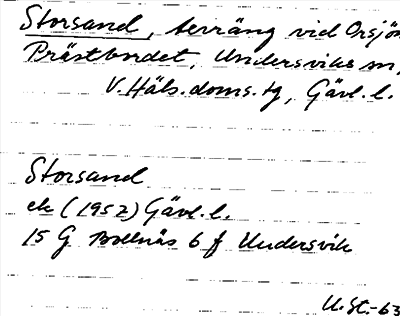 Storsand, terräng vid Orsjön
Prästbordet, Undersviks sn,
V. Häls. doms. tg, Gävl. l.
Storsand
ek (1952) Gävl. l.
15 G Bollnäs 6 f Undersvik
U. St. -63